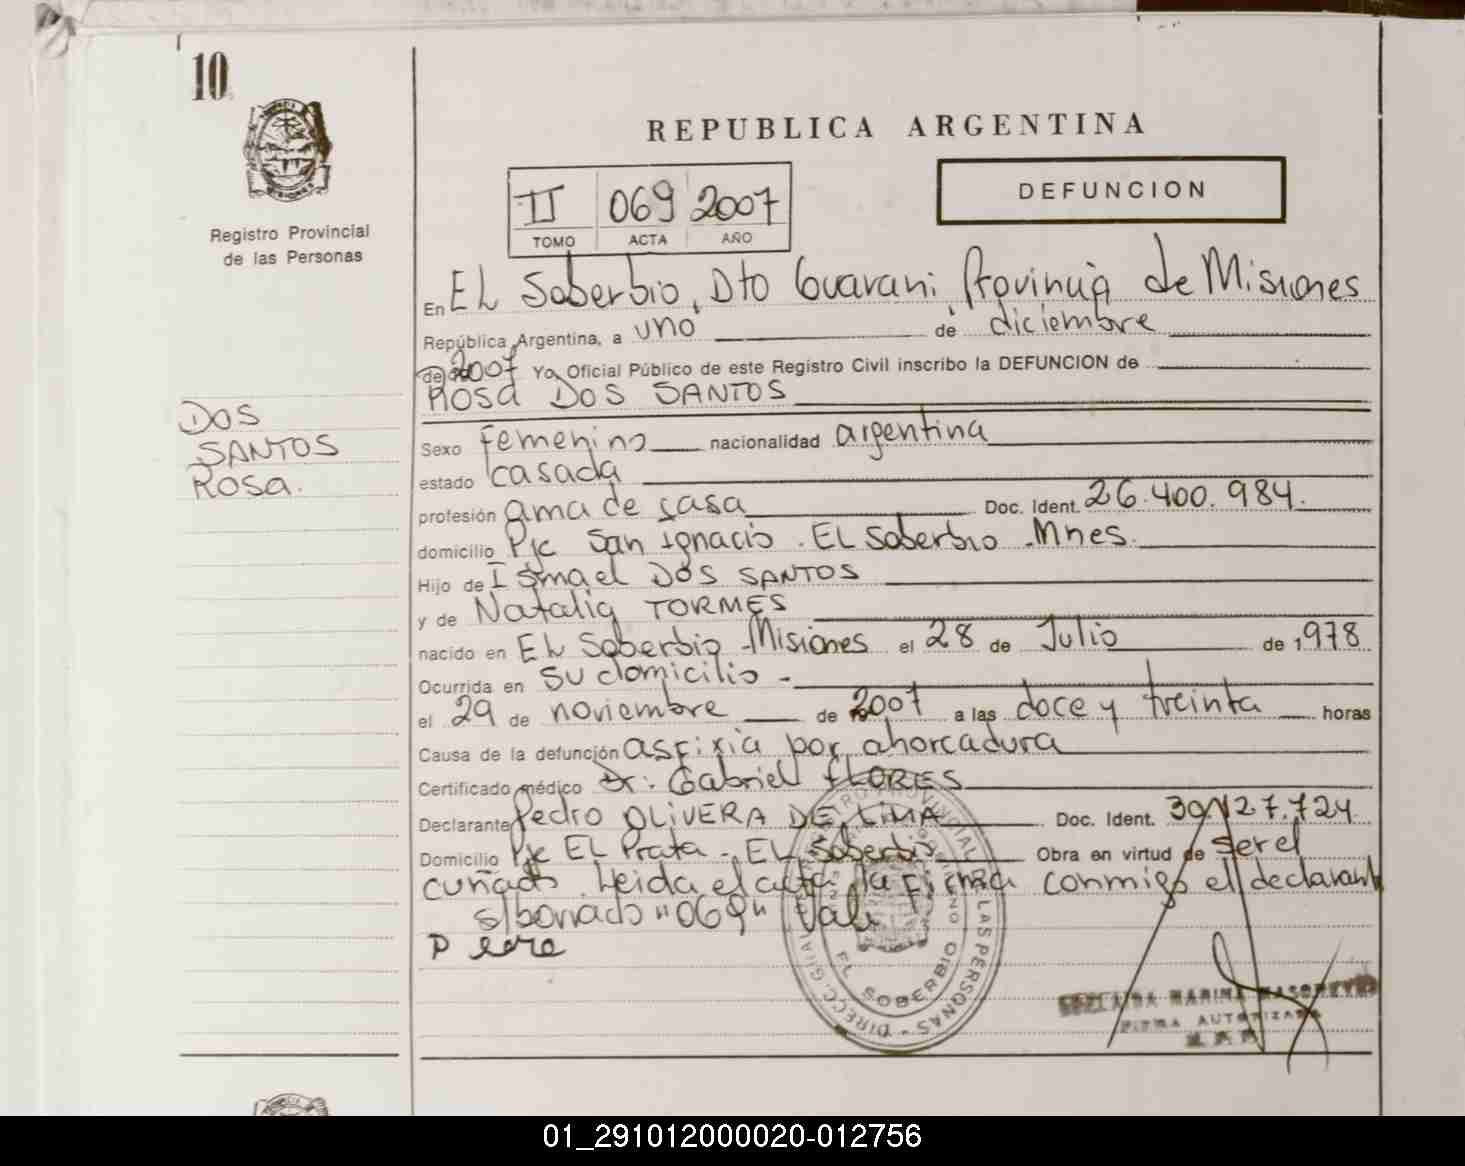 10
Registro Provincial
de las Personas
DOS
SANTOS
Rosa.
REPUBLICA ARGENTINA
II 069 2007
TOMO ACTA AÑO
DEFUNCION
En EL Soberbio, Dto Guarani Provincia de Misiones
República Argentina, a uno de diciembre
de 2007 Yo Oficial Público de este Registro Civil inscribo la DEFUNCION de
Rosa DOS SANTOS
Sexo femenino nacionalidad argentina
estado casada
profesión ama de casa Doc. Ident. 26.400.984.
domicilio Pje San Ignacio. EL Soberbio - Mnes.
Hijo de Ismael DOS SANTOS
y de Natalia TORMES
nacido en EL Soberbio - Misiones el 28 de Julio de 1978
Ocurrida en su domicilio -
el 29 de noviembre de 2007 a las doce y treinta horas
Causa de la defunción asfixia por ahorcadura
Certificado médico Dr. Gabriel FLORES
Declarante Pedro OLIVERA DE LIMA Doc. Ident. 727.724
Domicilio Pje EL Prata - EL Soberbio Obra en virtud de ser el
cuñado. Leida el acta, la firma conmigo el declarante
s/borrado "069" Vale
DIRECC. GRAL. REGISTRO PROVINCIAL DE LAS PERSONAS -
EL SOBERBIO
MARINA
FIRMA AUTORIZADA
01_291012000020-012756